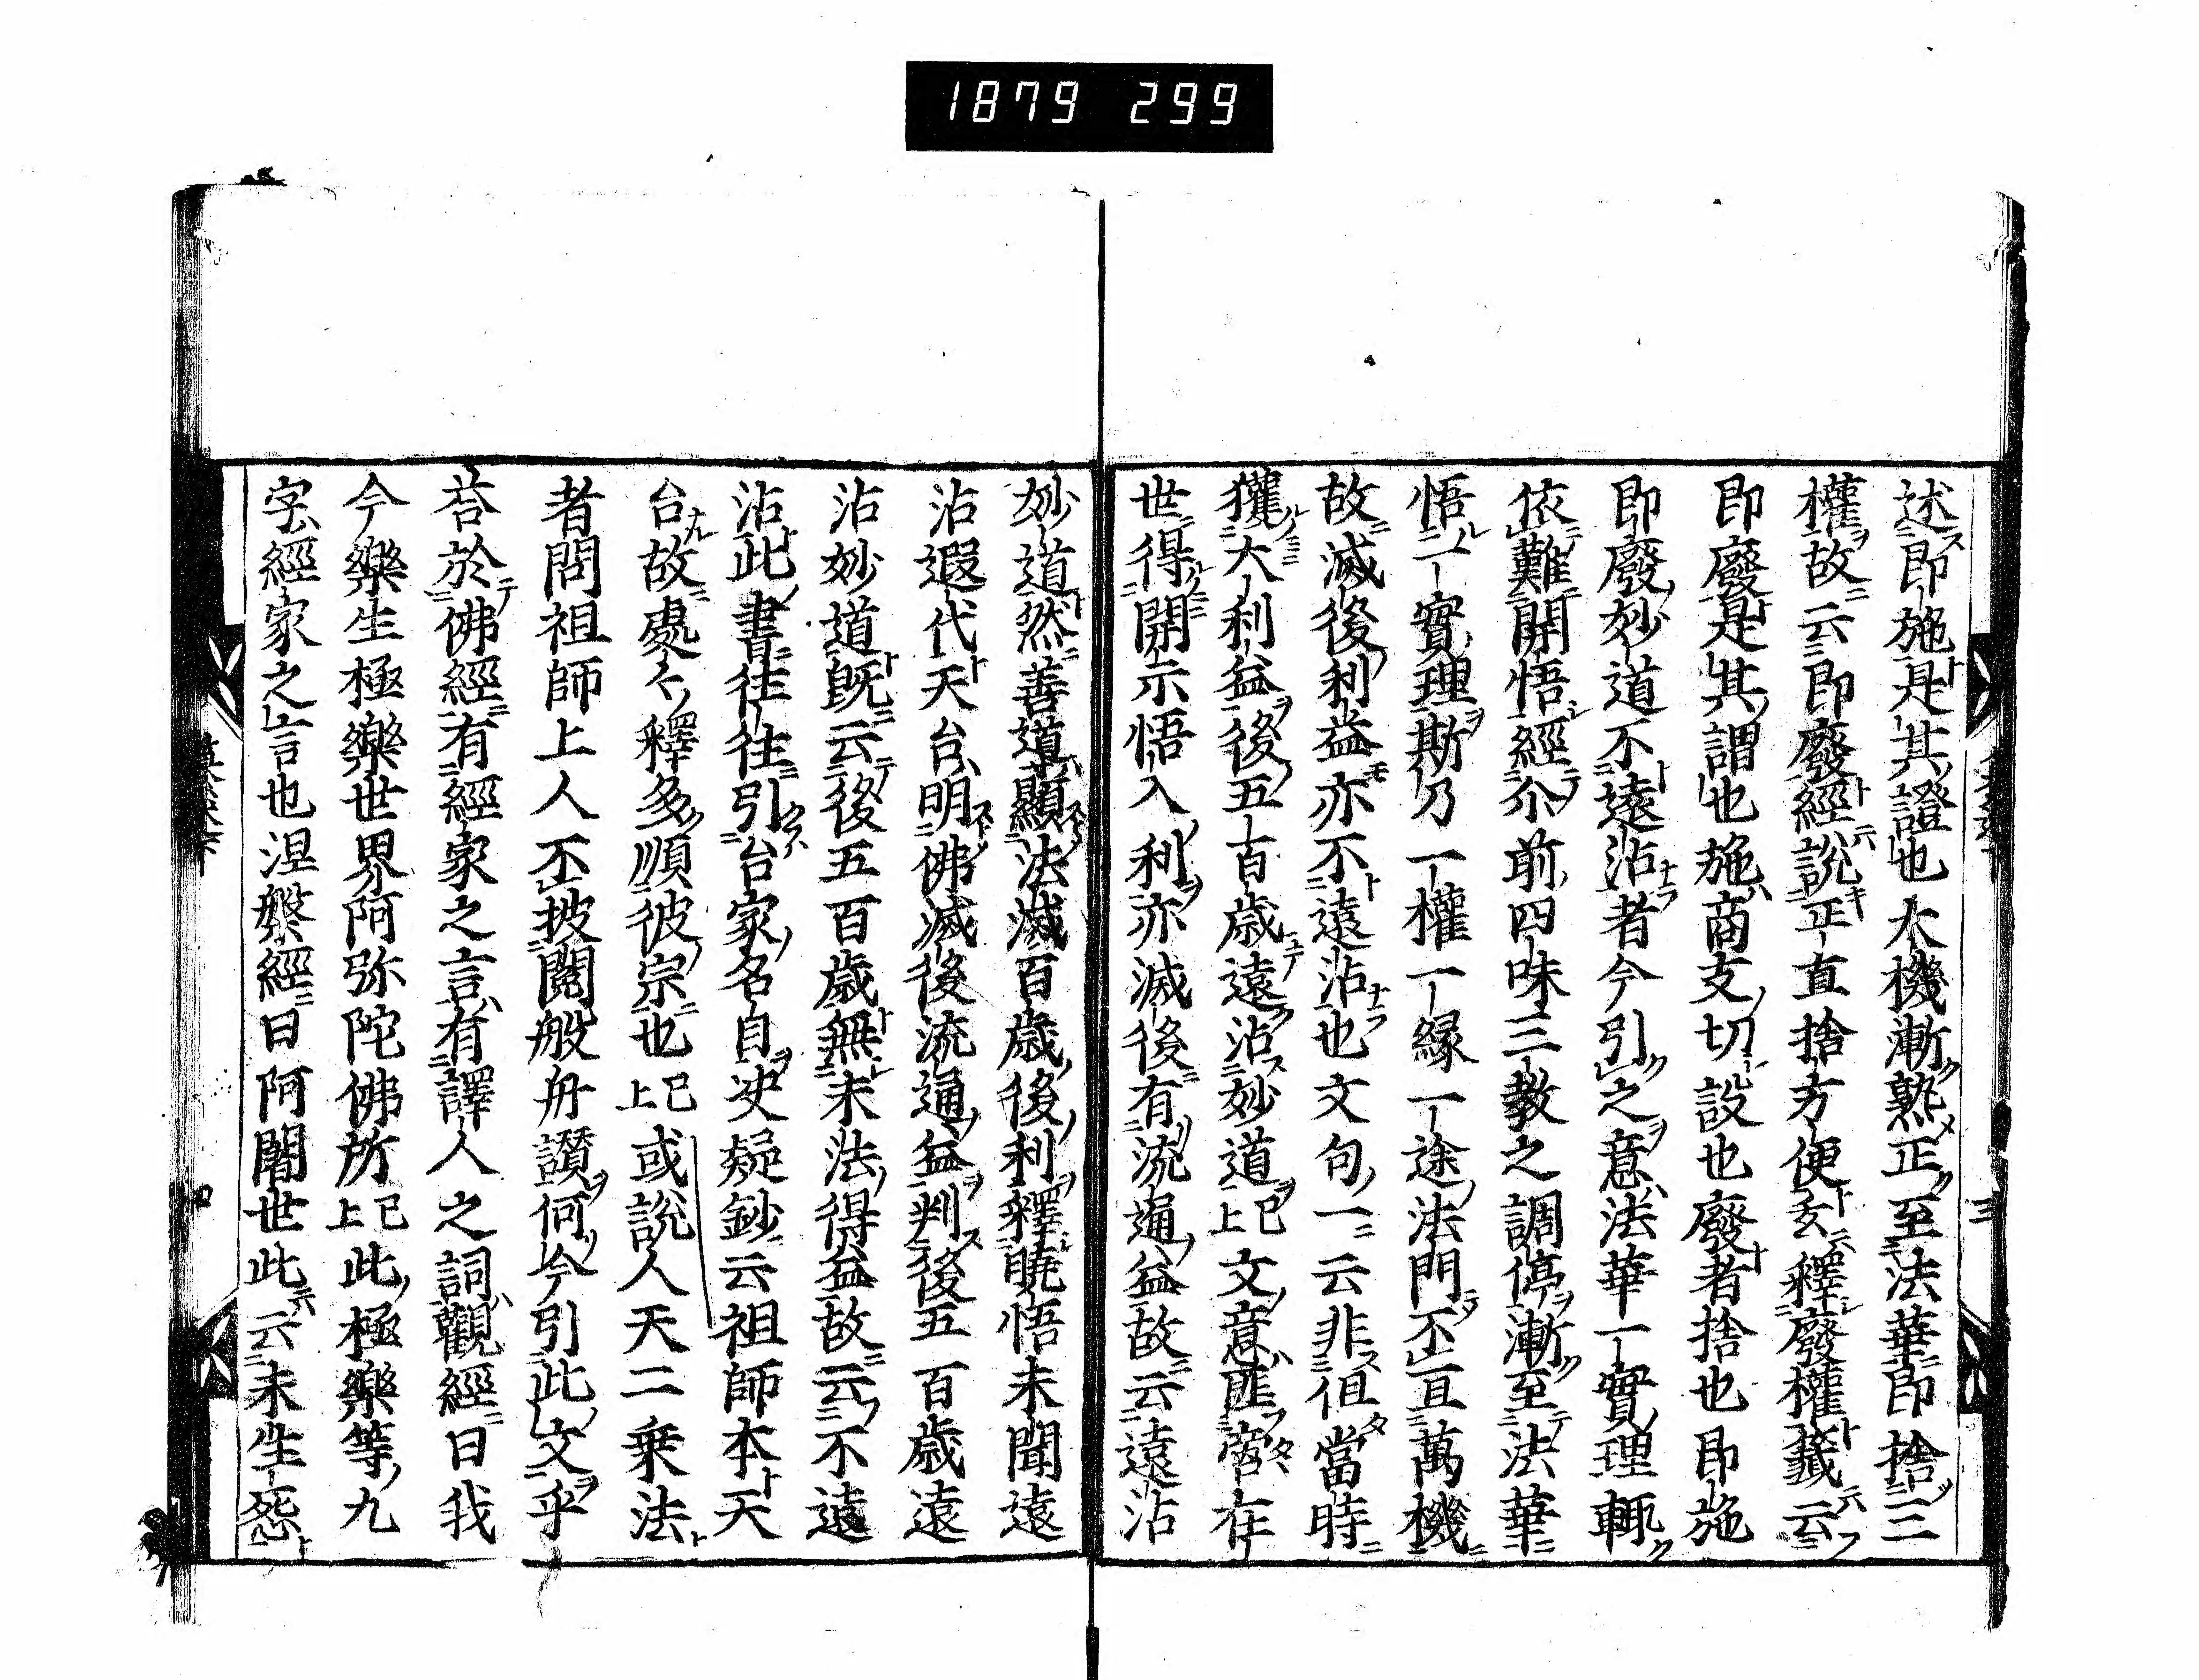 1879 299
述即施是其證也大機漸熟正至法華即捨三
權故云即廢經說正直捨方便玄釋廢權籤云
即廢是其謂也施商支切設也廢者捨也即施
即廢妙道不遠沾者今引之意法華一實理輙
依難開悟經尒前四味三教之調停漸至法華
悟一實理斯乃一權一緣一途法門不亘萬機
故滅後利益亦不遠沾也文句一云非但當時
獲大利益後五百歲遠沾妙道已上文意匪啻在
世得開示悟入利亦滅後有流通益故云遠沾
妙道然善道顯法滅百歲後利釋曉悟未聞遠
沾遐代天台明佛滅後流通益判後五百歲遠
沾妙道既云後五百歲無末法得益故云不遠
沾此書往往引台家名目決疑鈔云祖師本天
台故處々釋多順彼宗也已上或說人天二乗法
者問祖師上人不披閱般舟讃何今引此文乎
荅於佛經有經家之言有譯人之詞觀經曰我
今樂生極樂世界阿弥陀佛所已上此極樂等九
字經家之言也涅槃經曰阿闍世此云未生怨